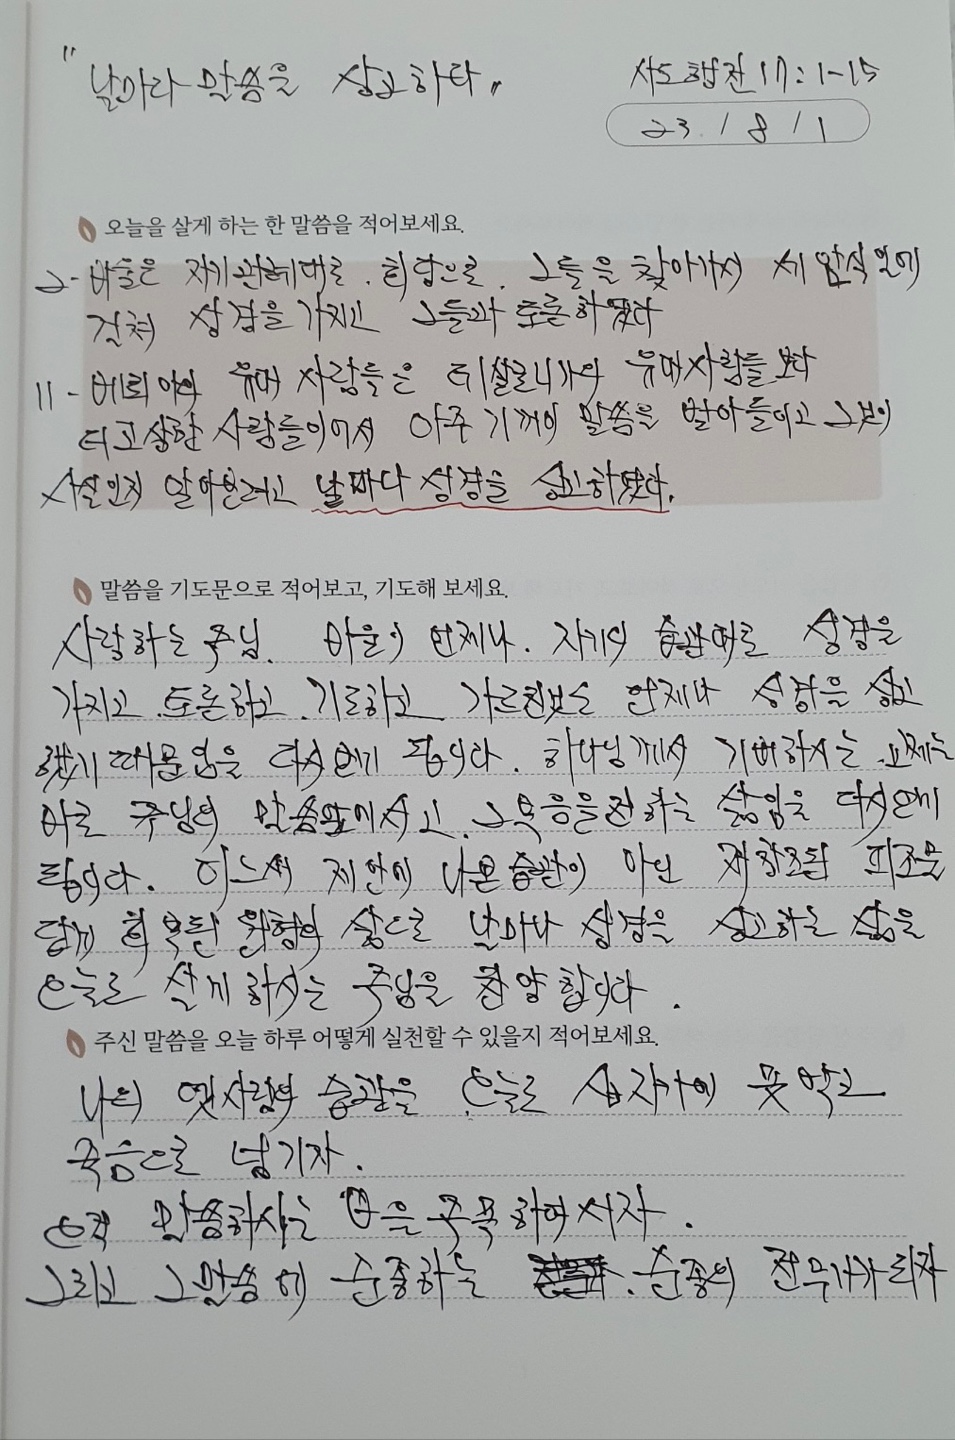 "날마다 말씀을 상고하다"
사도행전 17:1-15
23. / 8 / 1
오늘을 살게 하는 한 말씀을 적어보세요.
2- 바울은 자기 관례대로. 회당으로. 그들을 찾아가서 세 안식일에
걸쳐 성경을 가지고 그들과 토론하였다
11- 베뢰아의 유대 사람들은 데살로니가의 유대사람들 보다
더 고상한 사람들이어서 아주 기꺼이 말씀을 받아들이고 그것이
사실인지 알아보려고 날마다 성경을 상고하였다.
말씀을 기도문으로 적어보고, 기도해 보세요.
사랑하는 주님. 바울이 언제나. 자기의 습관대로 성경을
가지고. 토론하고. 기도하고 언제나 성경을 상고
했기 때문임을 다시보게 됩니다. 하나님께서 기뻐하시는 교제는
바로 주님의 말씀앞에 서고. 그 복음을 전하는 삶임을 다시보게
됩니다. 어느새 제안에 나쁜 습관이 아닌 재창조된 피조물
답게 회복된 원형의 삶으로 날마다 성경을 상고하는 삶을
오늘도 살게 하시는 주님을 찬양합니다.
주신 말씀을 오늘 하루 어떻게 실천할 수 있을지 적어보세요.
나의 옛사람의 습관을 오늘도 십자가에 못 박고
죽음으로 넘기자.
오직 말씀하시는 을 주목하여 서자.
그리고 그 말씀에 순종하는 순종의 전무가가 되자